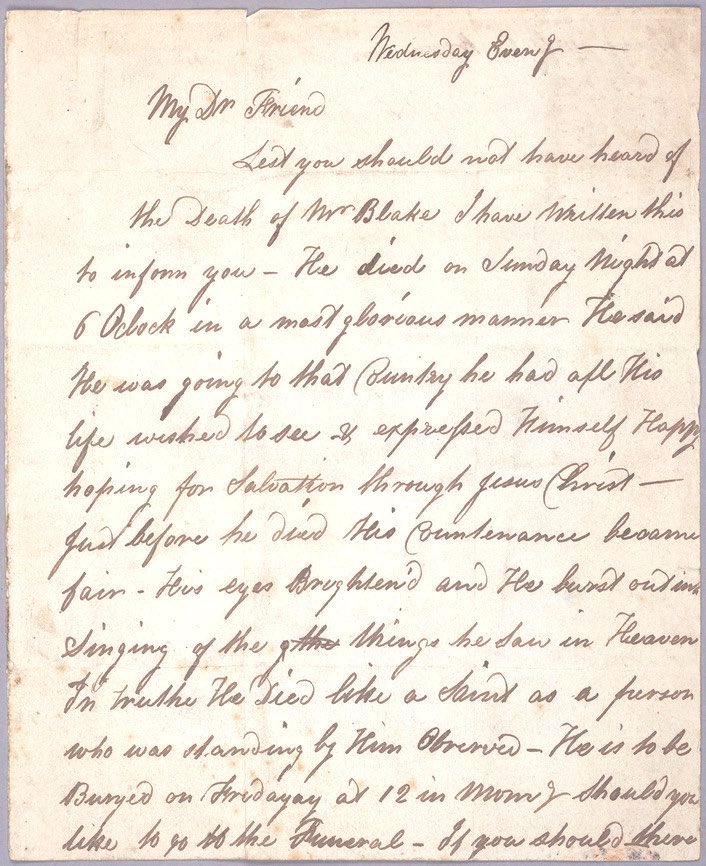 Wednesday Eveng —
My Dr Friend
Lest you should not have heard of
the Death of Mr Blake I have Written this
to inform you – He died on Sunday Night at
6 Oclock in a most glorious manner He said
He was going to that Country he had all His
life wished to see & expressed Himself Happy
hoping for Salvation through Jesus Christ —
Just before he died His Countenance became
fair – His eyes Brighten'd and He burst out in
Singing of the things he Saw in Heaven
In truth He Died like a Saint as a person
who was standing by Him Observed – He is to be
Buryed on Fridayay at 12 in Morng Should you
like to go to the Funeral – If you should there